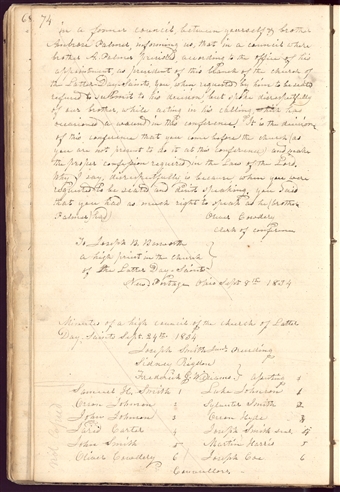 74
in a former council, between yourself & brother
Ambrose Palmer informing us, that in a council where
brother A. Palmer presided, according to the office of his
appointment, as president of this branch of the church of
the Latter Day Saints, you when requested by him to be seated
refused to submit to his decision but spoke disrespectfully
of our brother while acting in his calling which has
occasioned a wound in this conference. It is the decision
of this conference that you come before the church (as
you are not present to do it at this conference) and make
the proper confession required in the Law of the Lord.
Why I say, disrespectfully is because when you were
requested to be seated and quit speaking, you said
that you had as much right to speak as he (brother
Palmer) had.
Oliver Cowdery
Clerk of conference
To Joseph B. Bosworth
a high priest in the church
of the Latter Day Saints
New Portage Ohio Sept 8th 1834
Minutes of a high council of the church of Latter
Day Saints Sept. 24th 1834
Joseph Smith Junr. Presiding
Sidney Rigdon
Frederick G. Williams } Assistant
Samuel H. Smith 1 Luke Johnson 1
Orson Johnson 3 Sylvester Smith 2
John Johnson 3 Orson Hyde 3
Jared Carter 4 Joseph Smith sen 4
John Smith 5 Martin Harris 5
Oliver Cowdery 6 Joseph Coe 6
Councillors